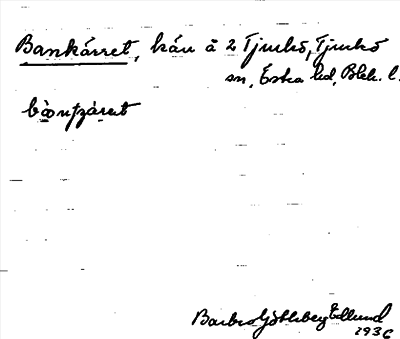 Bankärret, kän å 2 Tjurkö, Tjurkö
sn, Östra hd, Blek. l.
Barbro Götlberg Edlund
1936